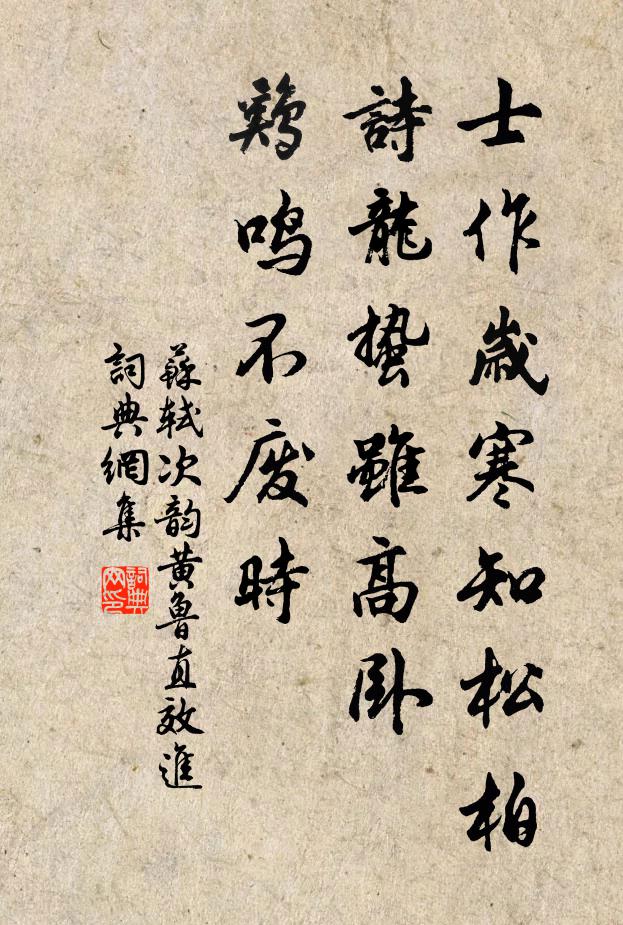 士作歲寒知松柏
詩龍蟄雖高卧
鷄鳴不废時
蘇轼次韵黄魯直效進
詞典網集
詞典網印